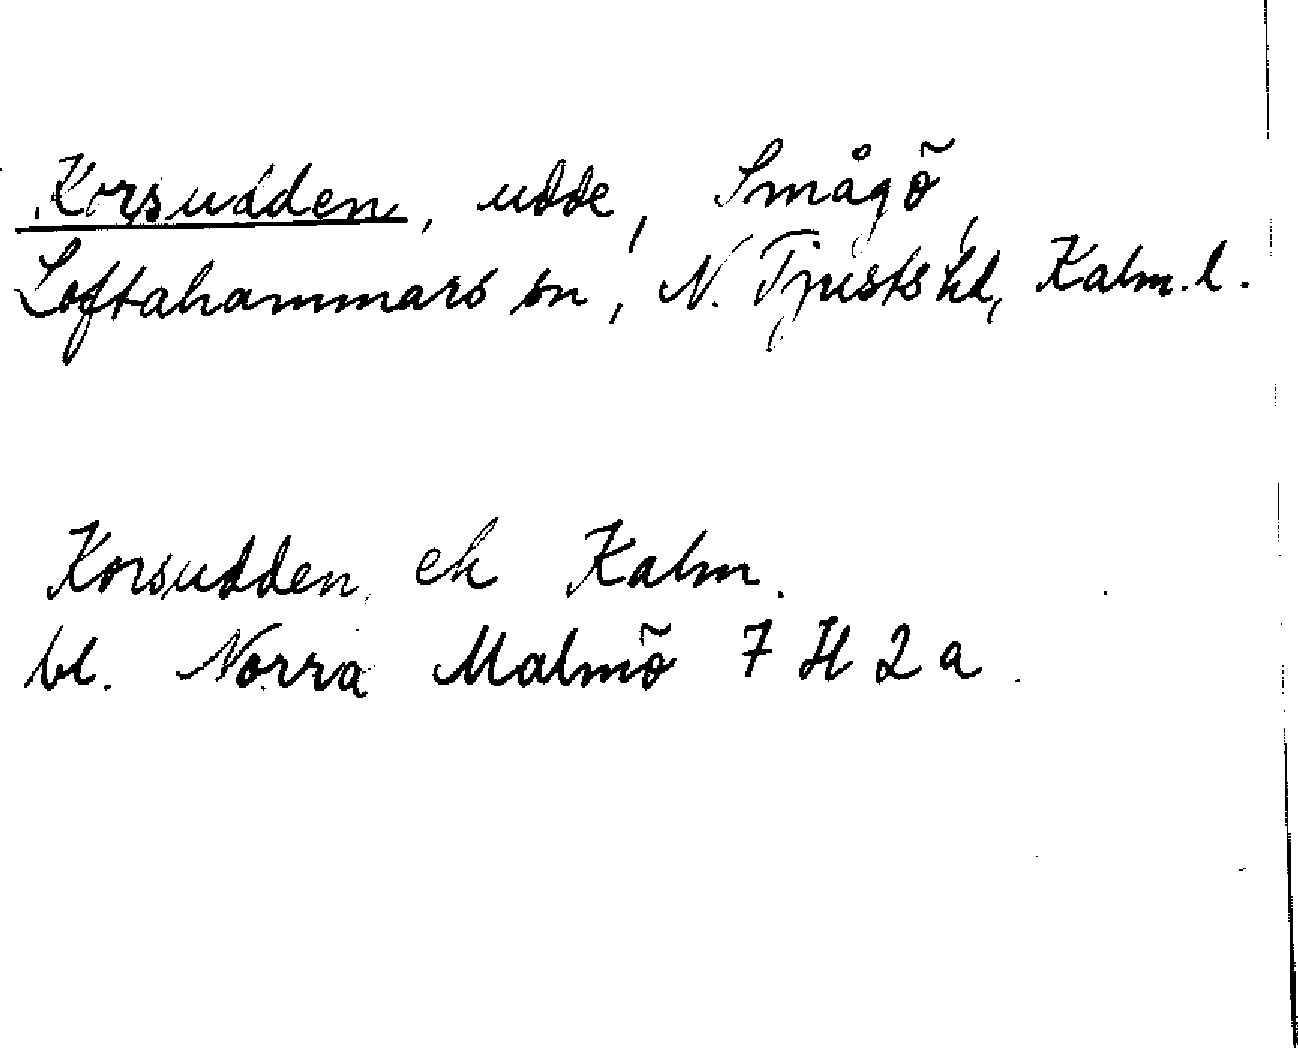 Korsudden, udde, Smågö,
Loftahammars sn, N. Tjusts hd, Kalm. l.
Korsudden, ek Kalm.
bl. Norra Malmö 7 H 2 a.